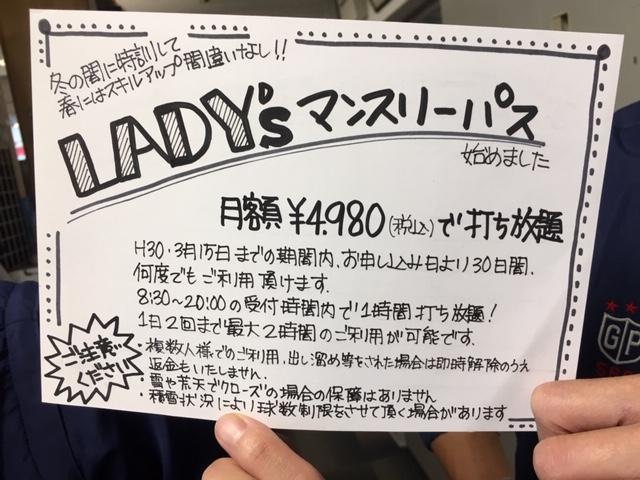 冬の間に特訓して
春にはスキルアップ間違いなし!!
LADY'sマンスリーパス
始めました
月額¥4.980(税込)で打ち放題
H30・3月15日までの期間内、お申し込み日より30日間、
何度でもご利用頂けます.
8:30〜20:00の受付時間内で1時間打ち放題!
1日2回まで最大2時間のご利用が可能です.
ご注意
ください
・複数人様でのご利用,出し溜め等をされた場合は即時解除のうえ
返金もいたしません.
・雪や荒天でクローズの場合の保障はありません
・積雪状況により球数制限をさせて頂く場合があります
GP